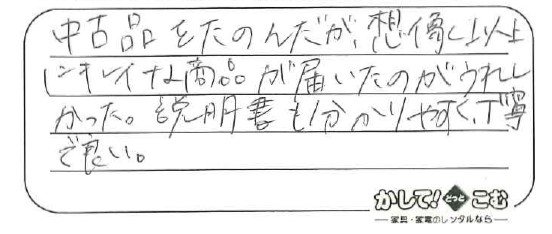 中古品をたのんだが、想像以上
にキレイな商品が届いたのがうれし
かった。説明書も分かりやすく、丁寧
で良い。
かして!どっとこむ
家具・家電のレンタルなら